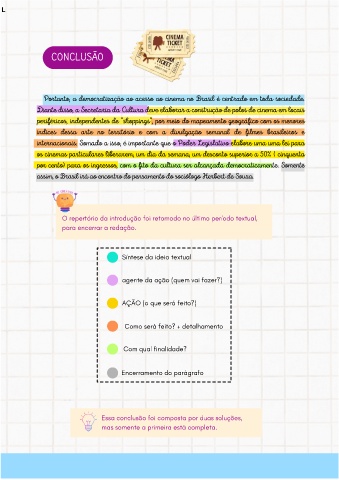 L
CINEMA
TICKET
CINEMA
TICKET
CONCLUSÃO
Portanto, a democratização ao acesso ao cinema no Brasil é centrado em toda sociedade.
Diante disso, a Secretaria da Cultura deve elaborar a construção de polos de cinema em locais
periféricos, independentes de "shoppings", por meio do mapeamento geográfico com os menores
índices dessa arte no território e com a divulgação semanal de filmes brasileiros e
internacionais. Somado a isso, é importante que o Poder Legislativo elabore uma uma lei para
os cinemas particulares liberarem, um dia da semana, um desconto superior a 50% ( cinquenta
por cento) para os ingressos, com o fito da cultura ser alcançada democraticamente. Somente
assim, o Brasil irá ao encontro do pensamento do sociólogo Herbert de Souza.
O repertório da introdução foi retomado no último período textual,
para encerrar a redação.
Síntese da ideia textual
agente da ação (quem vai fazer?)
AÇÃO (o que será feito?)
Como será feito? + detalhamento
Com qual finalidade?
Encerramento do parágrafo
Essa conclusão foi composta por duas soluções,
mas somente a primeira está completa.